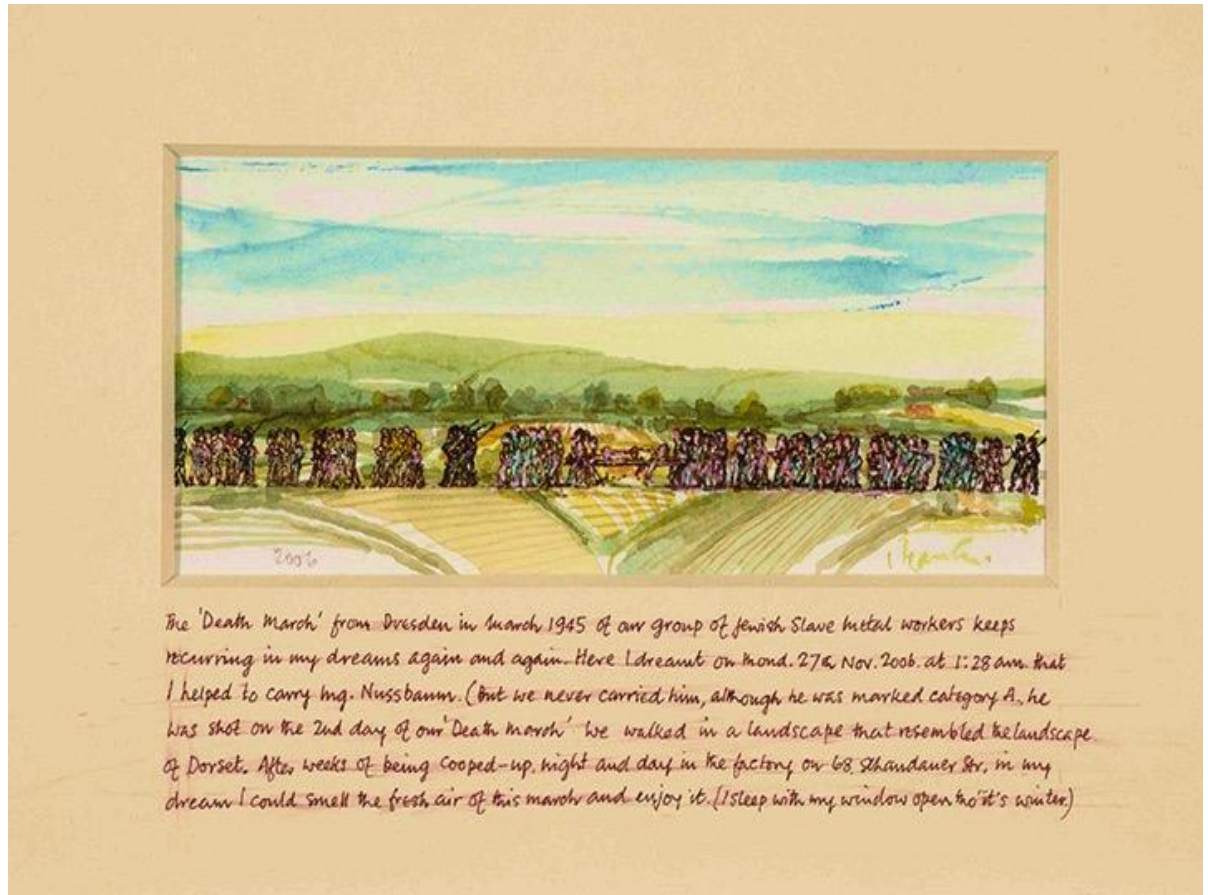 2006
The 'Death March' from Dresden in March 1945 of our group of Jewish Slave Metal workers keeps
recurring in my dreams again and again. Here I dreamt on Mond. 27th Nov. 2006. at 1:28 am that
I helped to carry Ing. Nussbaum. (But we never carried him, although he was marked category A, he
was shot on the 2nd day of our 'Death March' We walked in a landscape that resembled the landscape
of Dorset. After weeks of being cooped-up, night and day in the factory on 68, Schandauer Str, in my
dream I could smell the fresh air of this march and enjoy it. (I sleep with my window open tho' it's winter.)